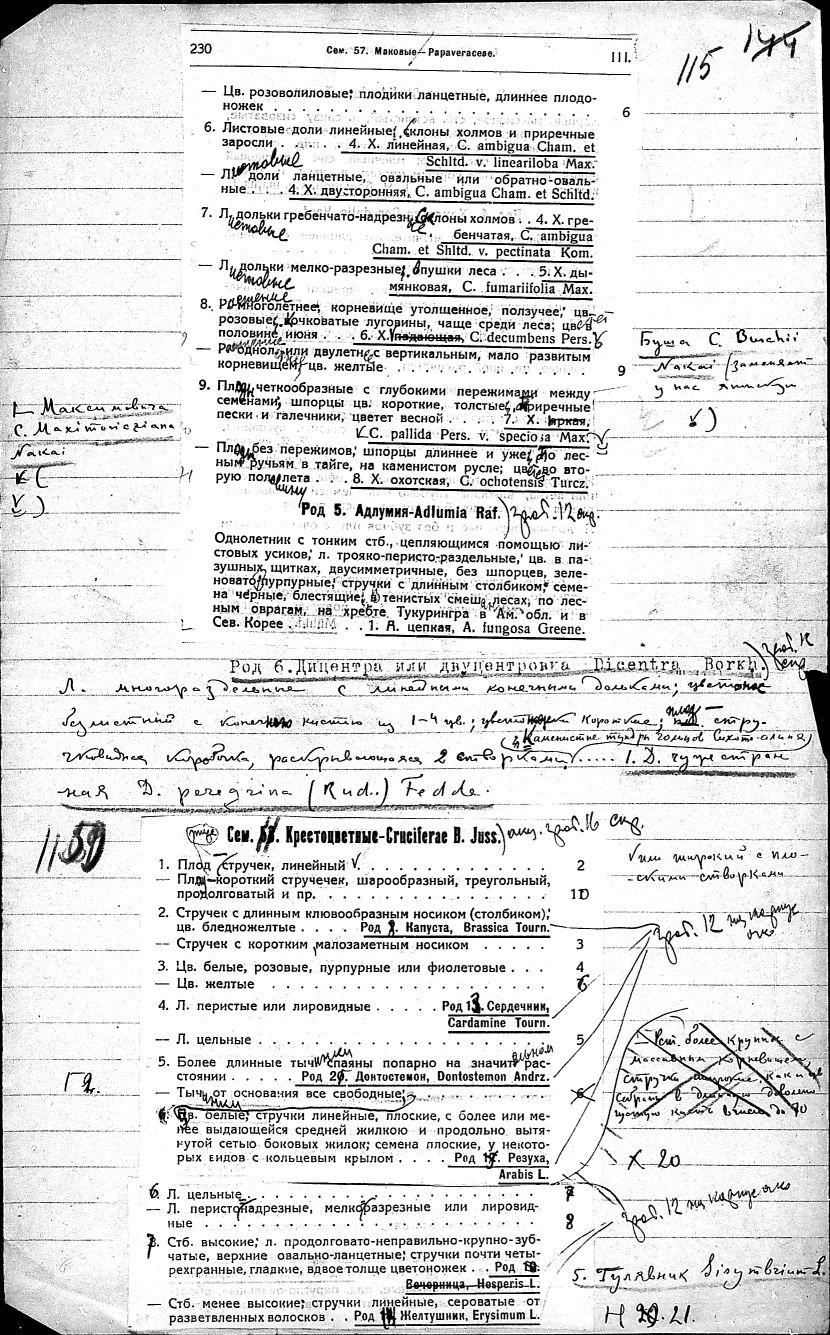 115 144
230 Сем. 57. Маковые—Papaveraceae. III.
— Цв. розоволиловые; плодики ланцетные, длиннее плодо-
ножек . . . . . . . . . . . . . . . . . . . . 6
6. Листовые доли линейные; склоны холмов и приречные
заросли . . . . . 4. Х. линейная, C. ambigua Cham. et
Schltd. v. lineariloba Max.
— Листовые доли ланцетные, овальные или обратно-оваль-
ные . . . 4. Х. двусторонняя, C. ambigua Cham. et Schltd.
7. Листовые дольки гребенчато-надрезные; склоны холмов . . 4. Х. гре-
бенчатая, C. ambigua
Cham. et Shltd. v. pectinata Kom.
— Листовые дольки мелко-разрезные; опушки леса . . . 5. Х. ды-
мянковая, C. fumariifolia Max.
8. Растение многолетнее, корневище утолщенное, ползучее; цв.
розовые; кочковатые луговины, чаще среди леса; цветет в
половине июня . . . 6. Х. падающая, C. decumbens Pers.
Буша C. Buschii
Nakai (заменяет
у нас
— Растение однолетнее или двулетнее с вертикальным, мало развитым
корневищем; цв. желтые . . . . . . . . . . . . 9
9. Плоды четкообразные с глубокими пережимами между
семенами, шпорцы цв. короткие, толстые; приречные
пески и галечники, цветет весной . . . . . 7. Х. яркая,
C. pallida Pers. v. speciosa Max.
Максимовича
C. Maximovicziana
Nakai
— Плоды без пережимов, шпорцы длиннее и уже; по лес-
ным ручьям в тайге, на каменистом русле; цветет во вто-
рую половину лета . . . 8. Х. охотская, C. ochotensis Turcz.
Род 5. Адлумия-Adlumia Raf.
Однолетник с тонким стб., цепляющимся помощью ли-
стовых усиков, л. трояко-перисто-раздельные, цв. в па-
зушных щитках, двусимметричные, без шпорцев, зеле-
новато-пурпурные; стручки с длинным столбиком; семе-
на черные, блестящие; в тенистых смешанных лесах, по лес-
ным оврагам, на хребте Тукурингра в Ам. обл. и в
Сев. Корее . . . . . . . 1. А. цепкая, A. fungosa Greene.
Род 6. Дицентра или двуцентровка Dicentra Borkh.
Л. многораздельные с линейными конечными дольками; цветонос
безлистный с конечною кистью из 1-4 цв.; цветоножки короткие; плод — стру-
чковидная коробочка, раскрывающаяся 2 створками
(Каменистые тундры гольцов Сихотэ-алиня)
..... 1. D. чужестран
ная D. peregrina (Rud.) Fedde.
Сем. Крестоцветные-Cruciferae B. Juss.
1. Плод — стручек, линейный . . . . . . . . . . . 2
или широкий с пло-
скими створками
— Плод — короткий стручечек, шарообразный, треугольный,
продолговатый и пр. . . . . . . . . . . . . . . 10
2. Стручек с длинным клювообразным носиком (столбиком),
цв. бледножелтые . . . . Род Капуста, Brassica Tourn.
— Стручек с коротким малозаметным носиком . . . . . 3
3. Цв. белые, розовые, пурпурные или фиолетовые . . . 4
— Цв. желтые . . . . . . . . . . . . . . . . . 6
4. Л. перистые или лировидные . . . . . Род 13. Сердечник,
Cardamine Tourn.
— Л. цельные . . . . . . . . . . . . . . . . . 5
5. Более длинные тычинки спаяны попарно на значительном рас-
стоянии . . . . . Род Донтостемон, Dontostemon Andrz.
— Тычинки от основания все свободные;
Цв. белые; стручки линейные, плоские, с более или ме-
нее выдающейся средней жилкою и продольно вытя-
нутой сетью боковых жилок; семена плоские, у некото-
рых видов с кольцевым крылом . . . . Род Резуха,
Arabis L.
X 20
6. Л. цельные . . . . . . . . . . . . . . . . . 7
— Л. перистонадрезные, мелкоразрезные или лировид-
ные . . . . . . . . . . . . . . . . . . . . 8
7. Стб. высокие; л. продолговато-неправильно-крупно-зуб-
чатые, верхние овально-ланцетные; стручки почти четы-
рехгранные, гладкие, вдвое толще цветоножек . . Род
Вечерница, Hesperis L.
5. Гулявник Sisymbrium L.
— Стб. менее высокие; стручки линейные, сероватые от
разветвленных волосков . . Род Желтушник, Erysimum L.
21.